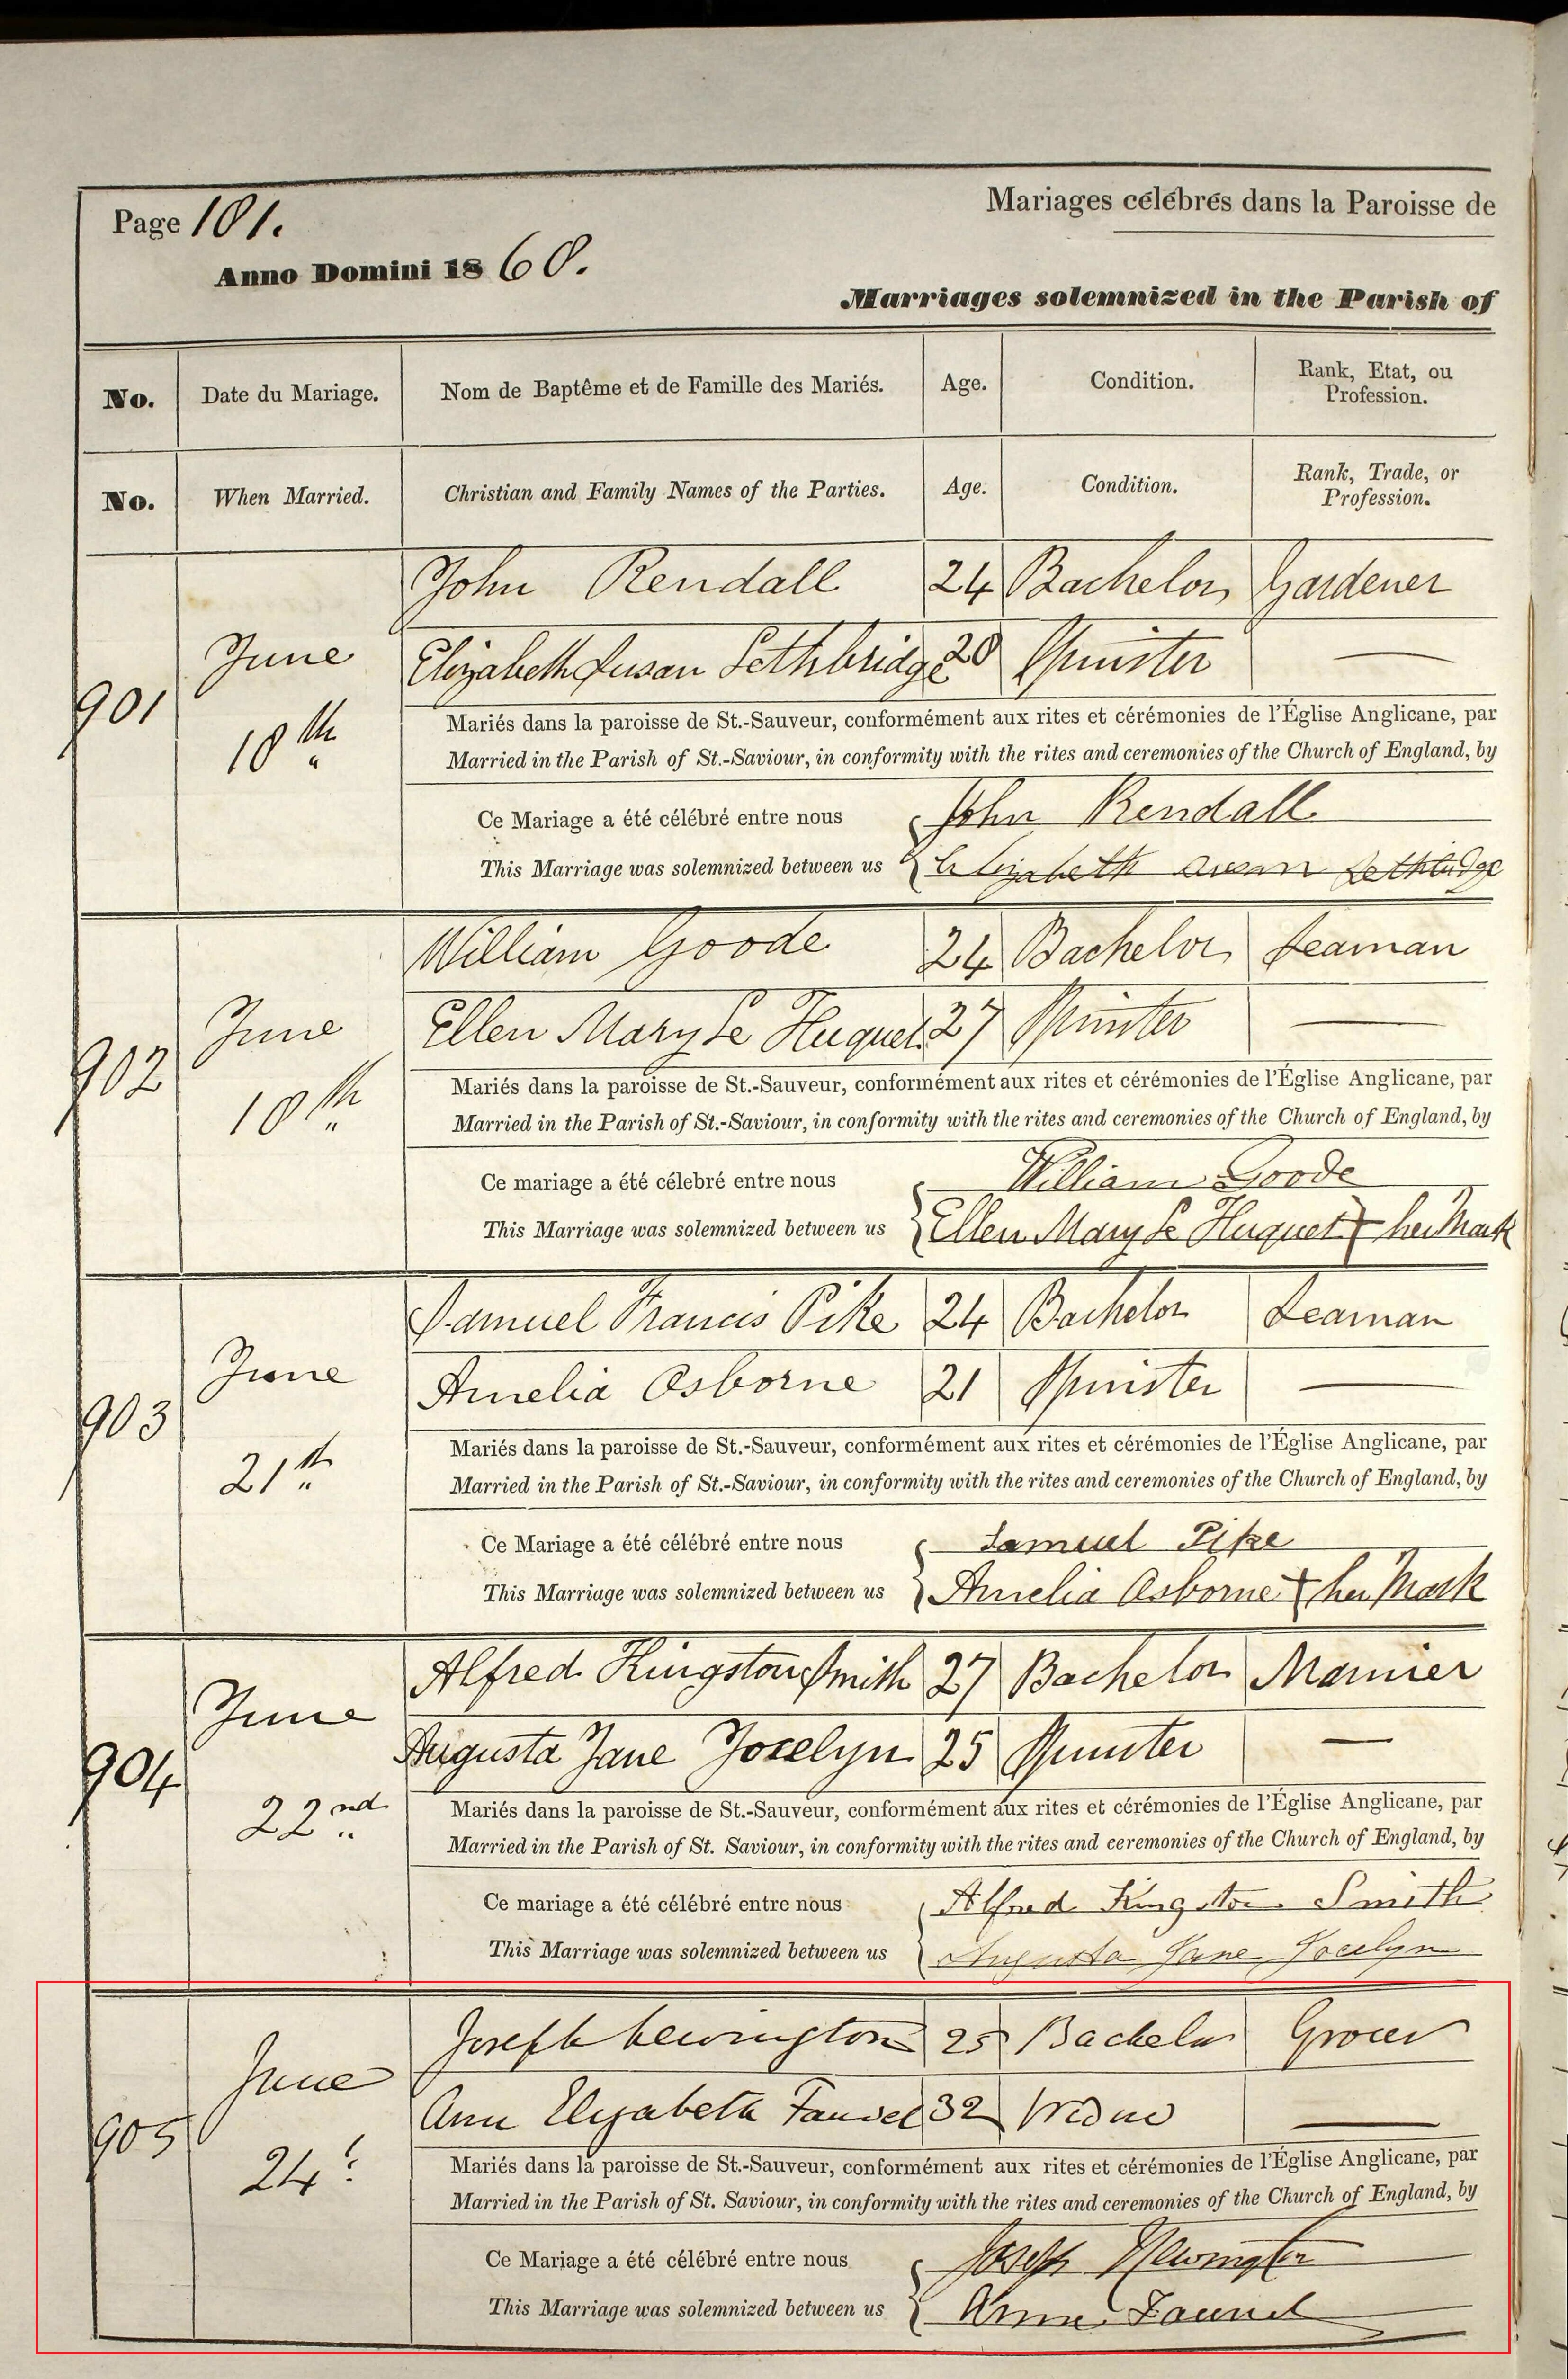 Page 181.
Mariages célébrés dans la Paroisse de
Anno Domini 1860.
Marriages solemnized in the Parish of
No. Date du Mariage. Nom de Baptême et de Famille des Mariés. Age. Condition. Rank, Etat, ou Profession.
No. When Married. Christian and Family Names of the Parties. Age. Condition. Rank, Trade, or Profession.
John Rendall 24 Bachelor Gardener
901 June 18th Elizabeth Susan Lethbridge 20 Spinster —
Mariés dans la paroisse de St.-Sauveur, conformément aux rites et cérémonies de l'Église Anglicane, par
Married in the Parish of St.-Saviour, in conformity with the rites and ceremonies of the Church of England, by
Ce Mariage a été célébré entre nous John Rendall
This Marriage was solemnized between us Elizabeth Susan Lethbridge
William Goode 24 Bachelor Seaman
902 June 18th Ellen Mary Le Huquet 27 Spinster —
Mariés dans la paroisse de St.-Sauveur, conformément aux rites et cérémonies de l'Église Anglicane, par
Married in the Parish of St.-Saviour, in conformity with the rites and ceremonies of the Church of England, by
Ce mariage a été célebré entre nous William Goode
This Marriage was solemnized between us Ellen Mary Le Huquet + her Mark
Samuel Francis Pike 24 Bachelor Seaman
903 June 21th Amelia Osborne 21 Spinster —
Mariés dans la paroisse de St.-Sauveur, conformément aux rites et cérémonies de l'Église Anglicane, par
Married in the Parish of St.-Saviour, in conformity with the rites and ceremonies of the Church of England, by
Ce Mariage a été célébré entre nous Samuel Pike
This Marriage was solemnized between us Amelia Osborne + her Mark
Alfred Kingston Smith 27 Bachelor Marinier
904 June 22nd Augusta Jane Jocelyn 25 Spinster —
Mariés dans la paroisse de St.-Sauveur, conformément aux rites et cérémonies de l'Église Anglicane, par
Married in the Parish of St. Saviour, in conformity with the rites and ceremonies of the Church of England, by
Ce mariage a été célébré entre nous Alfred Kingston Smith
This Marriage was solemnized between us Augusta Jane Jocelyn
Joseph Newington 25 Bachelor Grocer
905 June 24 Ann Elizabeth Fauvel 32 Widow —
Mariés dans la paroisse de St.-Sauveur, conformément aux rites et cérémonies de l'Église Anglicane, par
Married in the Parish of St. Saviour, in conformity with the rites and ceremonies of the Church of England, by
Ce Mariage a été célébré entre nous Joseph Newington
This Marriage was solemnized between us Anne Fauvel